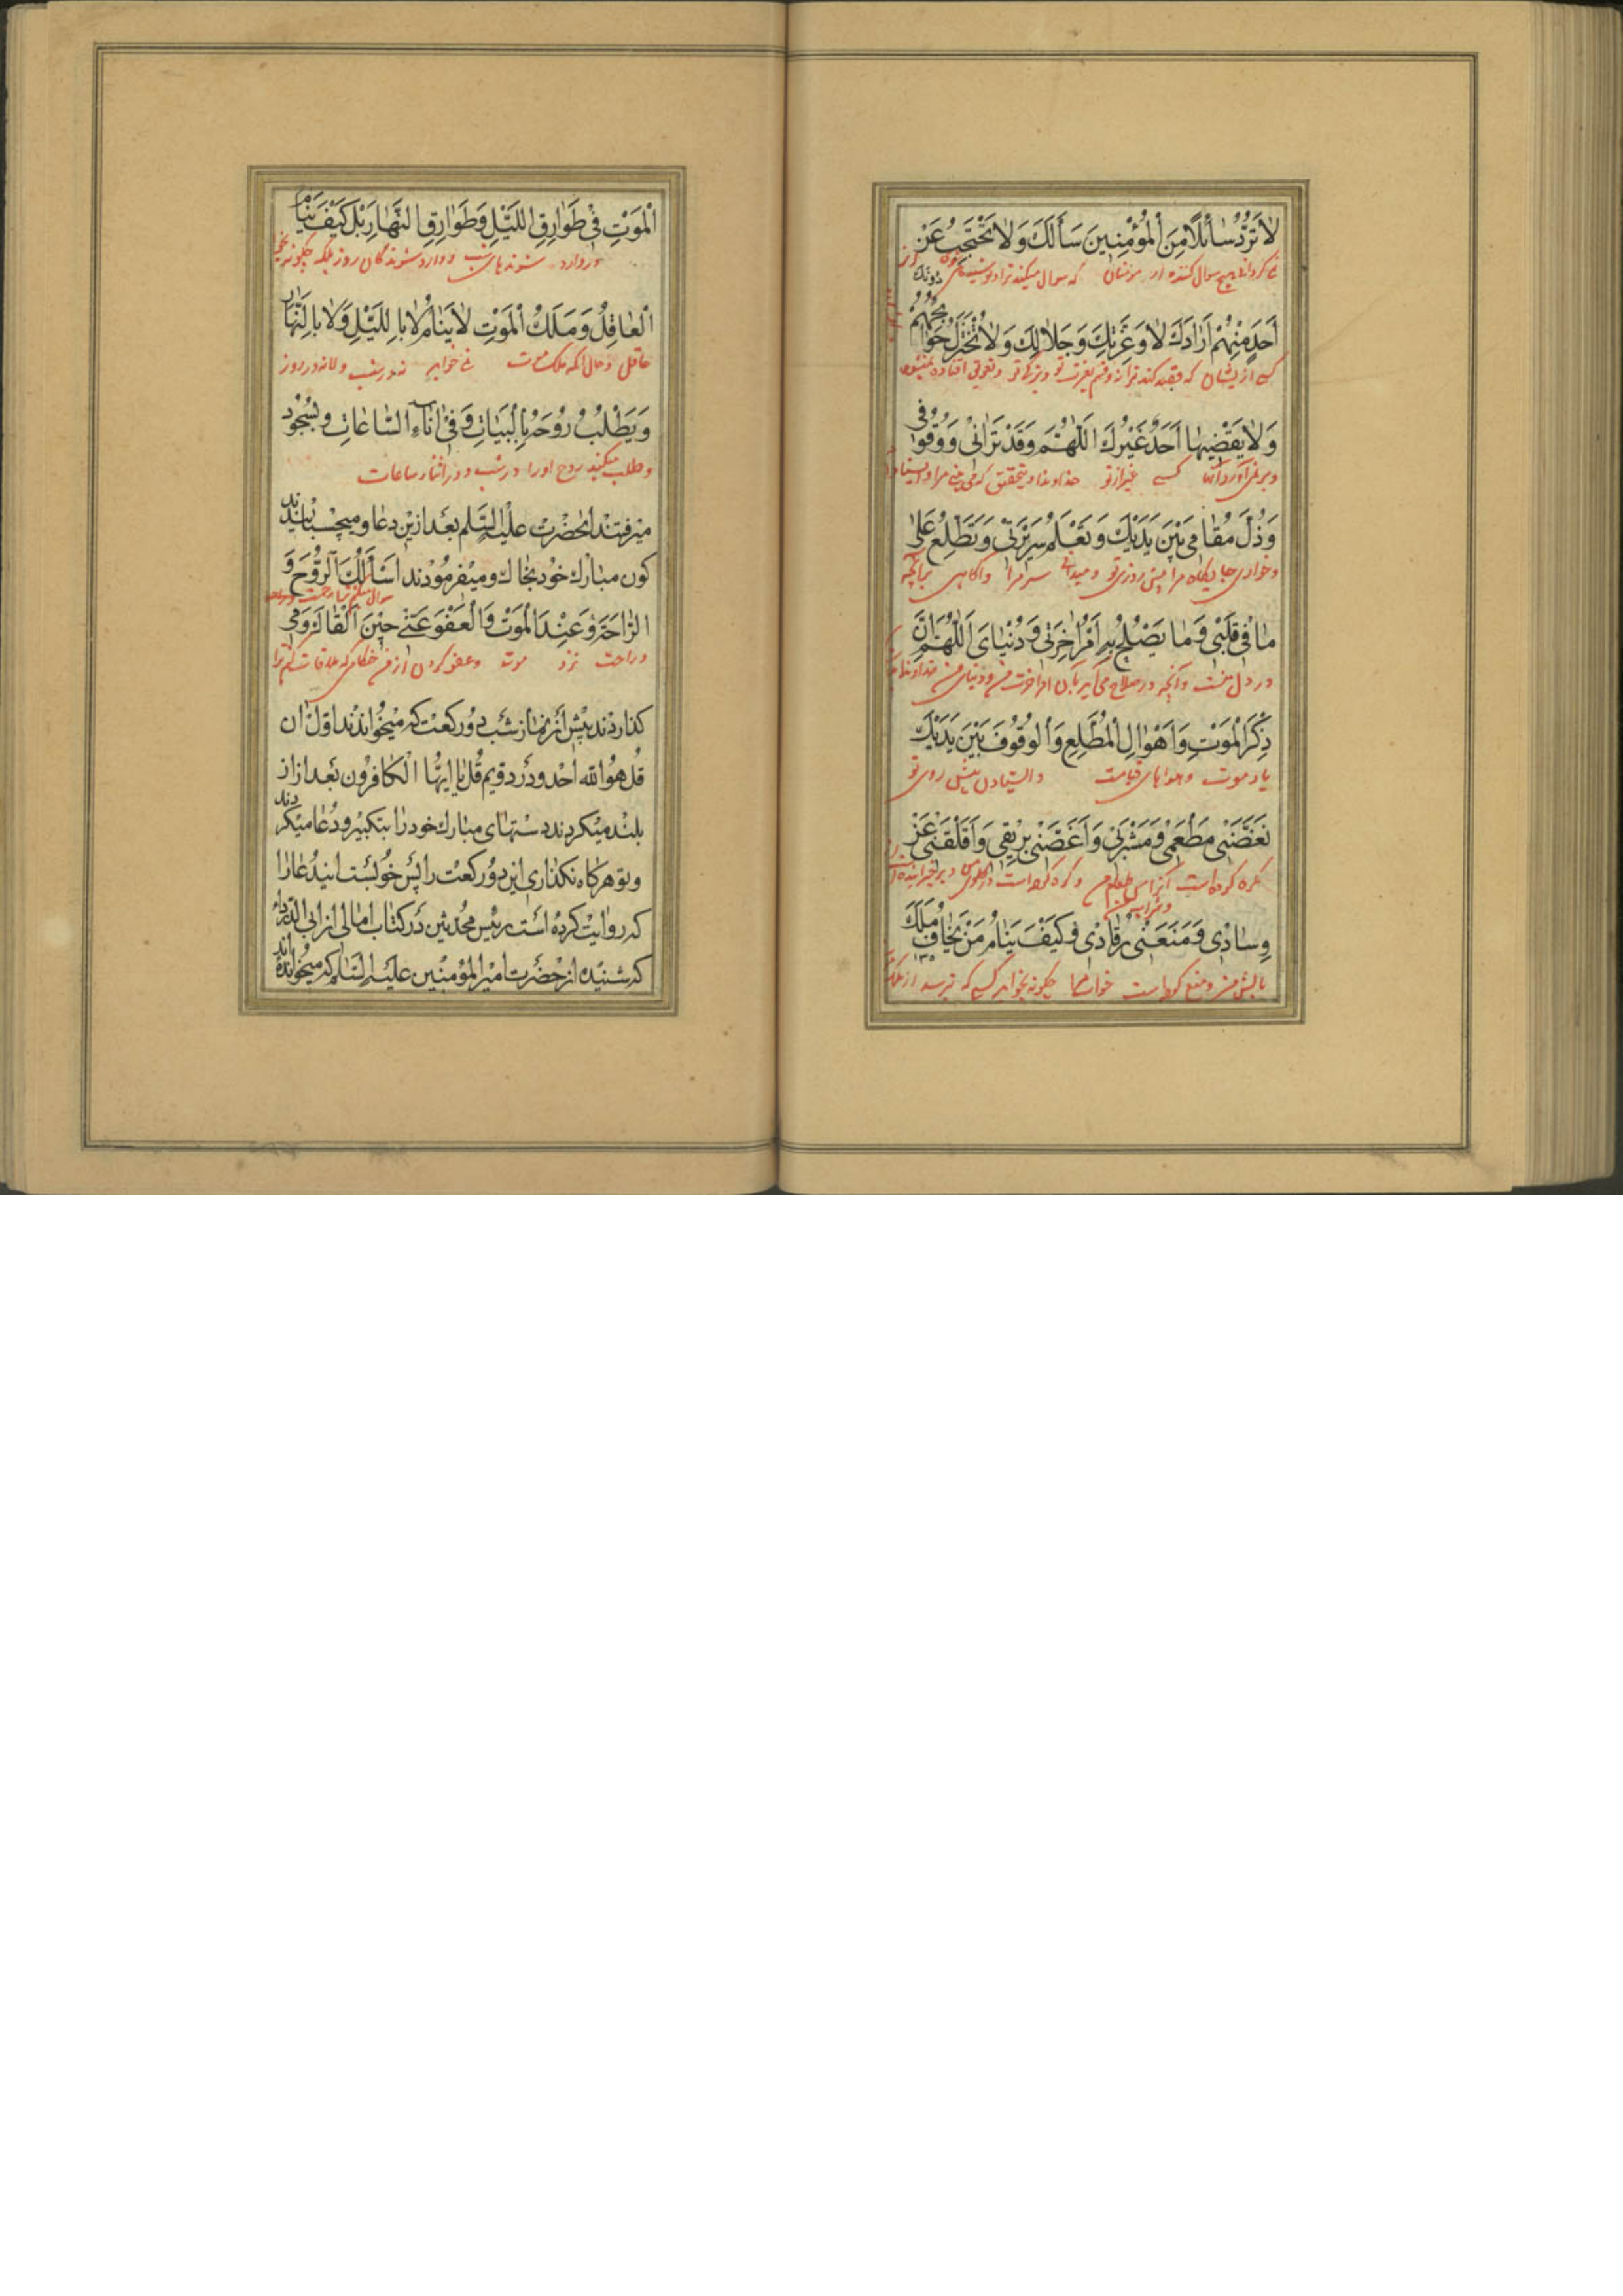 لا تَرُدُّ سٰائِلًا مِنَ الْمُؤْمِنينَ سَأَلَكَ وَلا تَحْتَجِبُ عَنْ
نمی گردانی هیچ سوال کننده از مؤمنان که سوال میکند ترا و
اَحَدٍ مِنْهُمْ اَرٰادَكَ لا وَعِزَّتِكَ وَجَلالِكَ وَلا تُخْتَزَلُ حَوٰائِجُهُمْ
دُونَكَ
کسی از ایشان که قصد کند ترا نه قسم بعزت تو و بزرگی تو
وَلا يَقْضيهٰا اَحَدٌ غَيْرُكَ اَللّٰهُمَّ وَقَدْ تَرٰانى وَوُقُوفى
و بر نمی آورد آنها کسی غیر از تو خداوندا و بتحقیق که می بینی مرا و ایستادن
وَذُلَّ مَقٰامى بَيْنَ يَدَيْكَ وَتَعْلَمُ سَريرَتى وَتَطَّلِعُ عَلىٰ
و خواری جایگاه مرا پیش روی تو و میدانی سر مرا و آگاهی بر آنچه
مٰا فى قَلْبى وَمٰا يَصْلُحُ بِهِ اَمْرُ اٰخِرَتى وَدُنْيٰاىَ اَللّٰهُمَّ اِنَّ
در دل منست و آنچه در صلاح می آید بآن امر آخرت من و دنیای من خداوندا
ذِكْرَ الْمَوْتِ وَاَهْوٰالِ الْمُطَّلَعِ وَالْوُقُوفَ بَيْنَ يَدَيْكَ
یاد موت و هولهای قیامت و ایستادن پیش روی تو
نَغَّصَنى مَطْعَمى وَمَشْرَبى وَاَغَصَّنى بِريقى وَاَقْلَقَنى عَنْ
وِسٰادى وَمَنَعَنى رُقٰادى وَكَيْفَ يَنٰامُ مَنْ يَخٰافُ مَلَكَ
بالش من و منع کرده است خواب مرا چگونه بخوابد کسی که ترسد از ملک
الْمَوْتِ فى طَوٰارِقِ اللَّيْلِ وَطَوٰارِقِ النَّهٰارِ بَلْ كَيْفَ يَنٰامُ
در وارد شوندهای شب و وارد شوندگان روز بلکه چگونه
الْعٰاقِلُ وَمَلَكُ الْمَوْتِ لا يَنٰامُ لا بِاللَّيْلِ وَلا بِالنَّهٰارِ
عاقل و حال آنکه ملک موت نمی خوابد نه در شب و لا نه در روز
وَيَطْلُبُ رُوحَهُ بِالْبَيٰاتِ وَفى اٰنٰاءِ السّٰاعٰاتِ و بسجود
و طلب میکند روح او را در شب و در اثناء ساعات
میرفتند آنحضرت علیه السلم بعد ازین دعا و میچسبانیدند
کون مبارك خود بخاك و میفرمودند اَسْأَلُكَ الرَّوْحَ وَ
الرّٰاحَةَ عِنْدَ الْمَوْتِ وَالْعَفْوَ عَنّى حينَ اَلْقٰاكَ و می
و راحت نزد موت و عفو کردن از من هنگامی که ملاقات کنم ترا
کذاردند پیش از نماز شب دو رکعت که میخواندند اول آن
قل هو الله احد و در دویم قل یا ایها الکافرون بعد از آن
بلند میکردند دستهای مبارك خود را بتکبیر و دعا میکردند
و تو هرکاه نکذاری این دو رکعت را پس خواست این دعا را
که روایت کرده است رئیس محدثین در کتاب امالی از ابی الدرداء
که شنیده از حضرت امیر المؤمنین علیه السلم که میخوانده اند